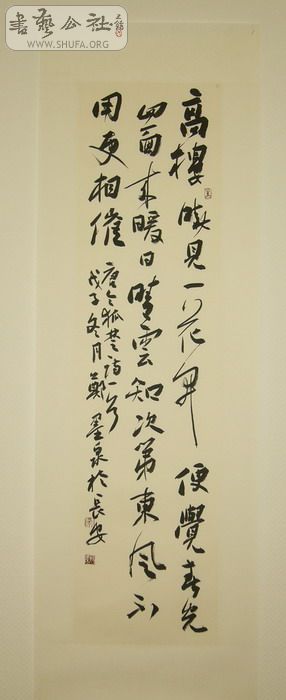 書藝公社
WWW.SHUFA.ORG
高樓曉見一花開便覺春光
四面来暖日晴雲知次第東風不
用更相催
唐令狐楚詩一首
戊子冬月鄭墨泉於長安